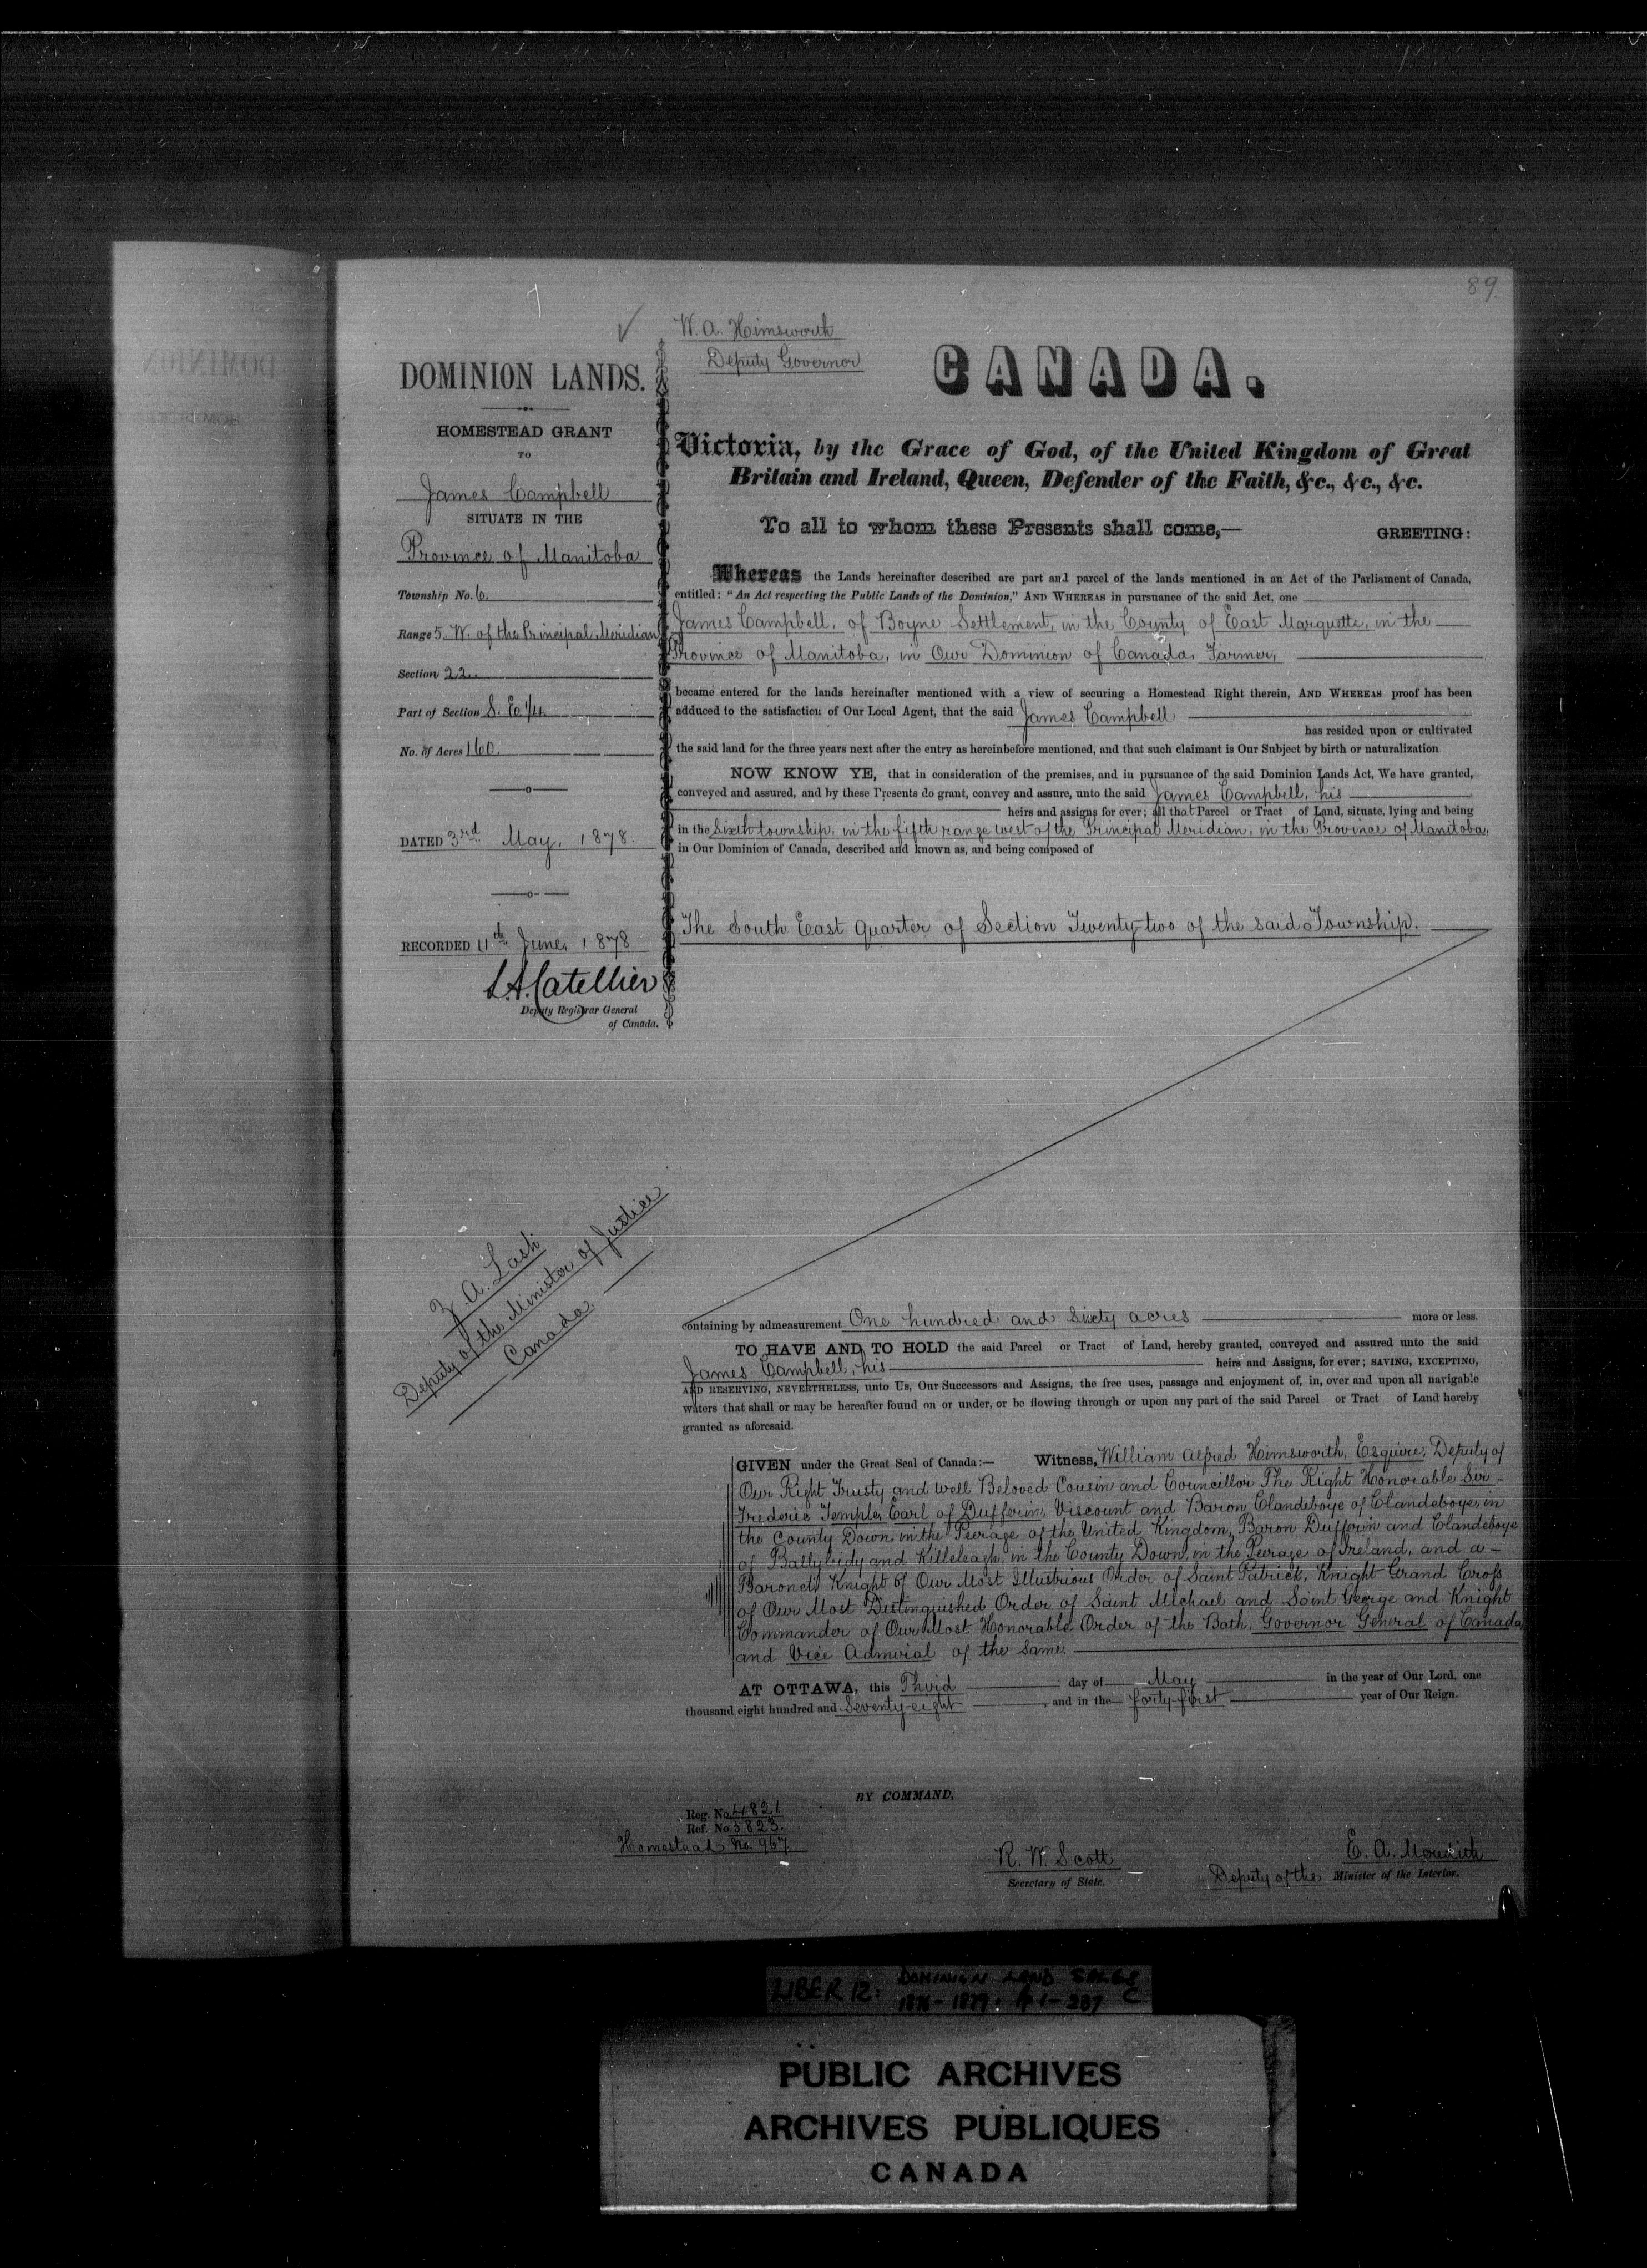 89.
W. A. Himsworth
Deputy Governor
DOMINION LANDS.
HOMESTEAD GRANT
TO
James Campbell
SITUATE IN THE
Province of Manitoba
Township No. 6.
Range 5. W. of the Principal Meridian
Section 22.
Part of Section S. E. 1/4.
No. of Acres 160.
DATED 3rd May, 1878.
RECORDED 11th June, 1878
L. A. Catellier
Deputy Registrar General
of Canada.
Z. A. Lash
Deputy of the Minister of Justice
Canada.
CANADA.
Victoria, by the Grace of God, of the United Kingdom of Great
Britain and Ireland, Queen, Defender of the Faith, &c., &c., &c.
To all to whom these Presents shall come,— GREETING:
Whereas the Lands hereinafter described are part and parcel of the lands mentioned in an Act of the Parliament of Canada,
entitled: "An Act respecting the Public Lands of the Dominion," AND WHEREAS in pursuance of the said Act, one
James Campbell, of Boyne Settlement, in the County of East Marquette, in the
Province of Manitoba, in Our Dominion of Canada, Farmer,
became entered for the lands hereinafter mentioned with a view of securing a Homestead Right therein, AND WHEREAS proof has been
adduced to the satisfaction of Our Local Agent, that the said James Campbell
has resided upon or cultivated
the said land for the three years next after the entry as hereinbefore mentioned, and that such claimant is Our Subject by birth or naturalization
NOW KNOW YE, that in consideration of the premises, and in pursuance of the said Dominion Lands Act, We have granted,
conveyed and assured, and by these Presents do grant, convey and assure, unto the said James Campbell, his
heirs and assigns for ever; all that Parcel or Tract of Land, situate, lying and being
in the Sixth township, in the fifth range west of the Principal Meridian, in the Province of Manitoba,
in Our Dominion of Canada, described and known as, and being composed of
The South East quarter of Section Twenty-two of the said Township.
containing by admeasurement One hundred and Sixty acres more or less.
TO HAVE AND TO HOLD the said Parcel or Tract of Land, hereby granted, conveyed and assured unto the said
James Campbell, his heirs and Assigns, for ever; SAVING, EXCEPTING,
AND RESERVING, NEVERTHELESS, unto Us, Our Successors and Assigns, the free uses, passage and enjoyment of, in, over and upon all navigable
waters that shall or may be hereafter found on or under, or be flowing through or upon any part of the said Parcel or Tract of Land hereby
granted as aforesaid.
GIVEN under the Great Seal of Canada:— Witness, William Alfred Himsworth, Esquire, Deputy of
Our Right Trusty and well Beloved Cousin and Councillor The Right Honorable Sir
Frederic Temple, Earl of Dufferin, Viscount and Baron Clandeboye of Clandeboye, in
the County Down, in the Peerage of the United Kingdom, Baron Dufferin and Clandeboye
of Ballyleidy and Killeleagh, in the County Down, in the Peerage of Ireland, and a
Baronet, Knight of Our Most Illustrious Order of Saint Patrick, Knight Grand Cross
of Our Most Distinguished Order of Saint Michael and Saint George and Knight
Commander of Our Most Honorable Order of the Bath, Governor General of Canada,
and Vice Admiral of the same.
AT OTTAWA, this Third day of May in the year of Our Lord, one
thousand eight hundred and Seventy-eight, and in the forty-first year of Our Reign.
BY COMMAND,
Reg. No. 4821
Ref. No. 5823.
Homestead No. 967
R. W. Scott
Secretary of State.
E. A. Meredith
Deputy of the Minister of the Interior.
LIBER 12: DOMINION LAND SALES
1876-1879. p 1-237 C
PUBLIC ARCHIVES
ARCHIVES PUBLIQUES
CANADA